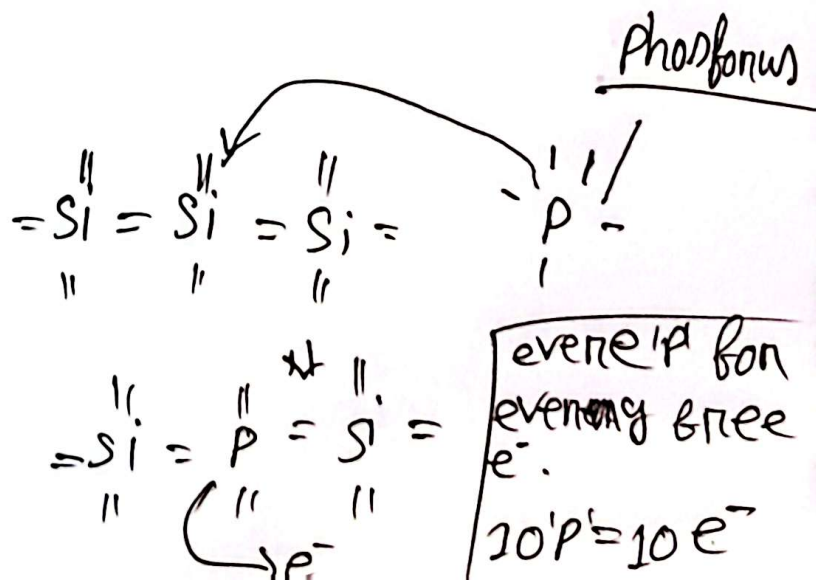 Phosfonus
=Si = Si = Si =
P
=Si = P = Si =
e⁻
evene 'P' fon
evenong fnee
e⁻.
10'P'=10 e⁻